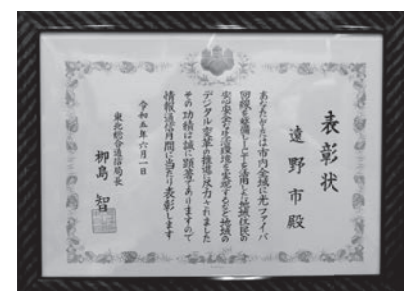 表彰状
遠野市殿
あなたがたは市内全域に光ファイバ
回線を整備しこれを活用した地域住民の
安心安全な生活環境を実現するなど地域の
デジタル変革の推進に尽力されました
その功績は誠に顕著でありますので
情報通信月間に当たり表彰します
令和五年六月一日
東北総合通信局長
柳島 智